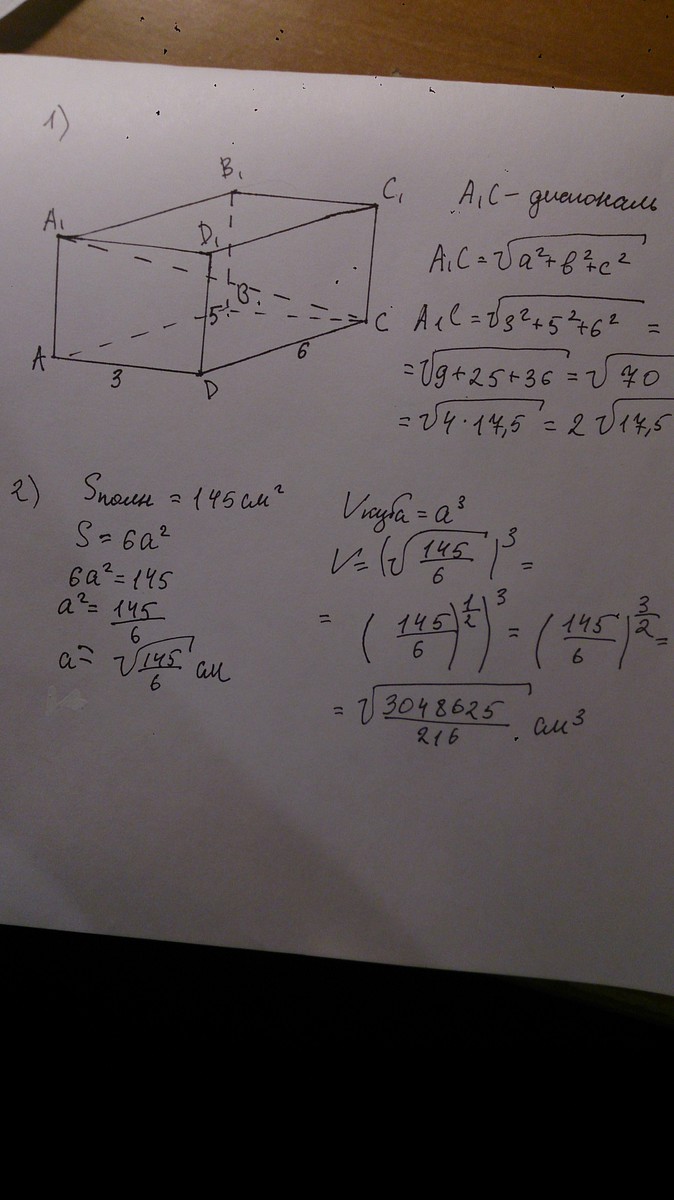 1)
B₁
C₁
A₁
D₁
B
5
C
A
3
D
6
A₁C – диагональ
A₁C = √a²+b²+c²
A₁C = √3²+5²+6² =
= √9+25+36 = √70
= √4·17,5 = 2√17,5
2) Sполн = 145 см²
S = 6a²
6a² = 145
a² = 145/6
a = √145/6 см
Vкуба = a³
V = (√145/6)³ =
= ((145/6)^1/2)³ = (145/6)^3/2 =
= √3048625/216 см³